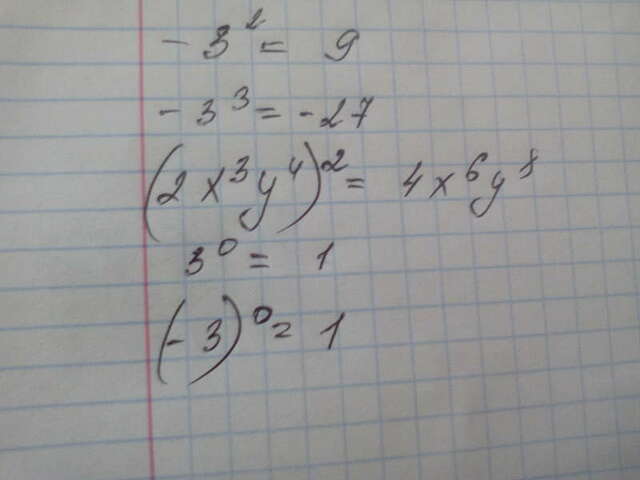 -3² = 9
-3³ = -27
(2x³y⁴)² = 4x⁶y⁸
3⁰ = 1
(-3)⁰ = 1